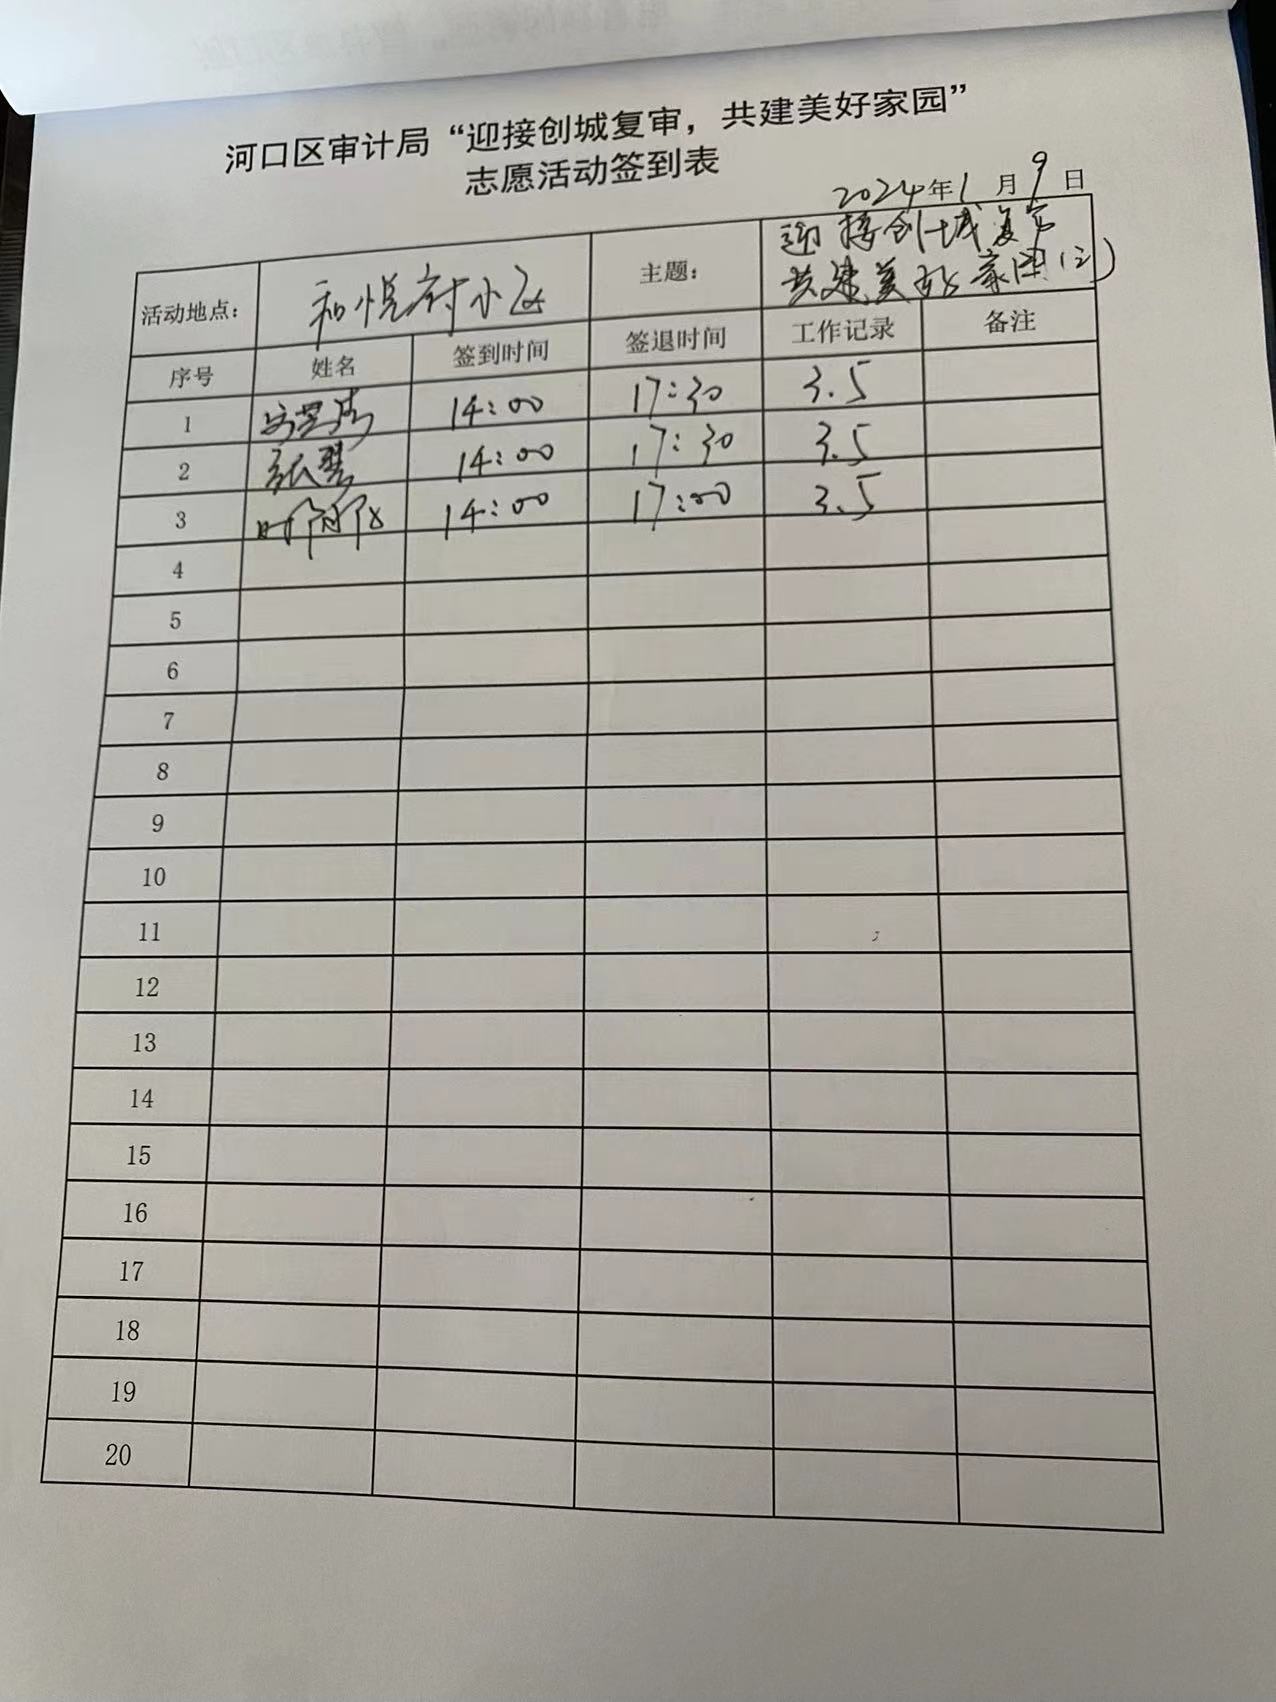 河口区审计局“迎接创城复审，共建美好家园”
志愿活动签到表
2024年1月9日
活动地点： 和悦府小区 主题： 迎接创城复审
共建美好家园(三)
序号 姓名 签到时间 签退时间 工作记录 备注
1 14:00 17:30 3.5
2 张琴 14:00 17:30 3.5
3 14:00 17:00 3.5
4
5
6
7
8
9
10
11
12
13
14
15
16
17
18
19
20